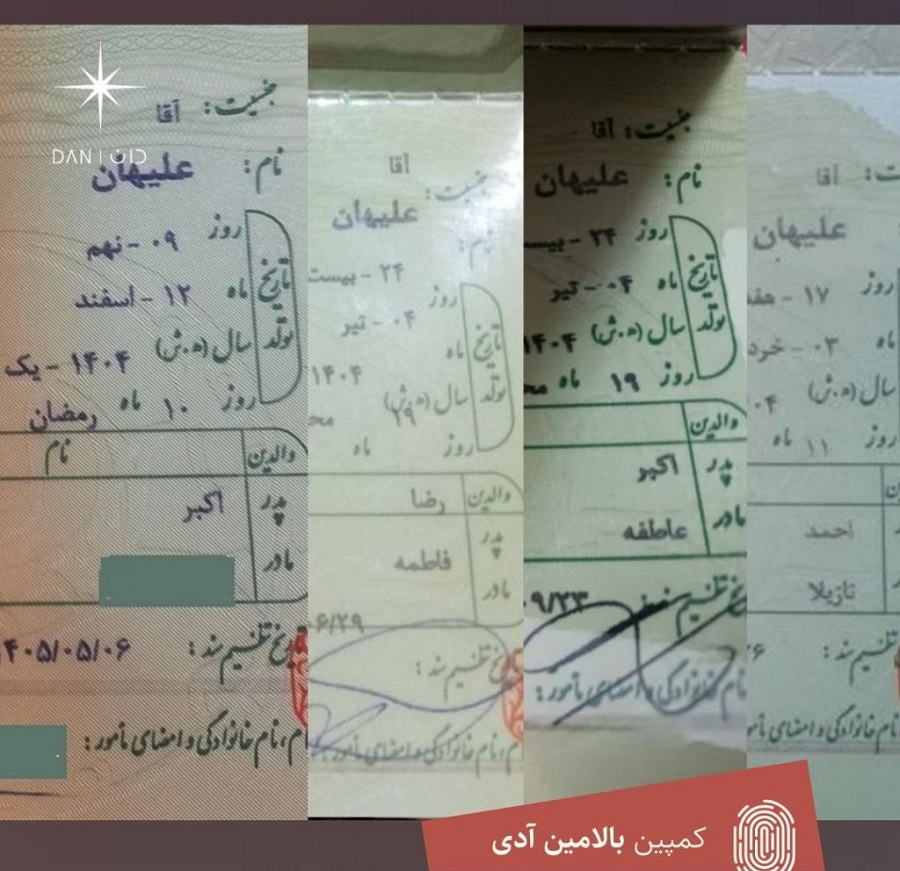 DAN | دان
جنسیت: آقا
نام: علیهان
تاریخ تولد
روز ۰۹ - نهم
ماه ۱۲ - اسفند
سال (ه.ش) ۱۴۰۴ - یک
روز ۱۰ ماه رمضان
والدین نام
پدر اکبر
مادر
تاریخ تنظیم سند: ۱۴۰۵/۰۵/۰۶
نام خانوادگی و امضای مأمور:
جنسیت: آقا
نام: علیهان
تاریخ تولد
روز ۲۴ - بیست
ماه ۰۴ - تیر
سال (ه.ش) ۱۴۰۴
روز ۱۹ ماه
والدین
پدر رضا
مادر فاطمه
تاریخ تنظیم سند:
نام خانوادگی و امضای مأمور:
جنسیت: آقا
نام: علیهان
تاریخ تولد
روز ۲۴
ماه ۰۴ - تیر
سال (ه.ش) ۱۴۰۴
روز ۱۹ ماه
والدین
پدر اکبر
مادر عاطفه
نام خانوادگی و امضای مأمور:
آقا
علیهان
روز ۱۷
ماه ۰۳ - خرد
سال (ه.ش)
روز ۱۱ ماه
احمد
نازیلا
تاریخ تنظیم سند:
نام خانوادگی و امضای
کمپین بالامین آدی